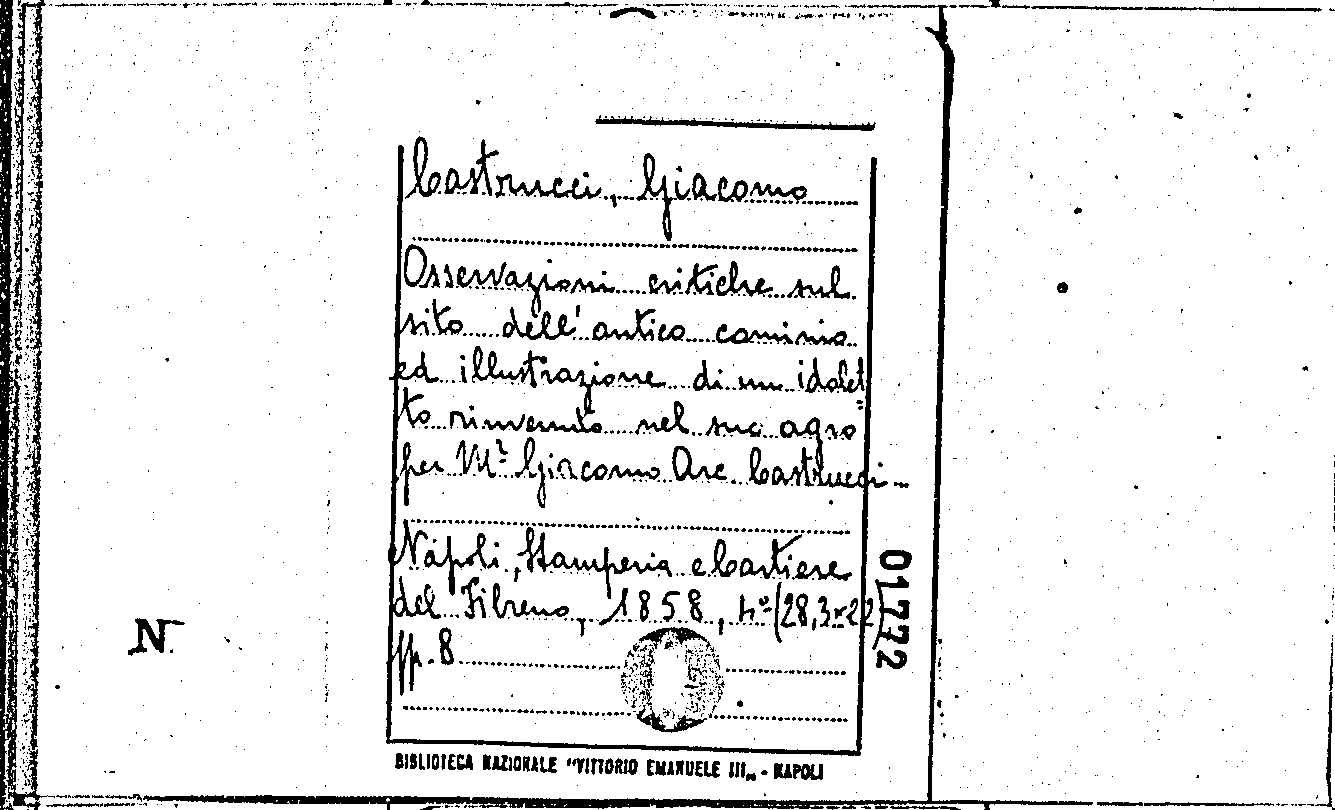 Castrucci, Giacomo
Osservazioni critiche sul
sito dell'antico cominio
ed illustrazione di un idolet
to rinvenuto nel suo agro
per Mr Giacomo Arc. Castrucci...
Napoli, Stamperia e Cartiere
del Fibreno, 1858, 4º (28,3×22)
pp. 8
01772
N
BIBLIOTECA NAZIONALE "VITTORIO EMANUELE III„ - NAPOLI